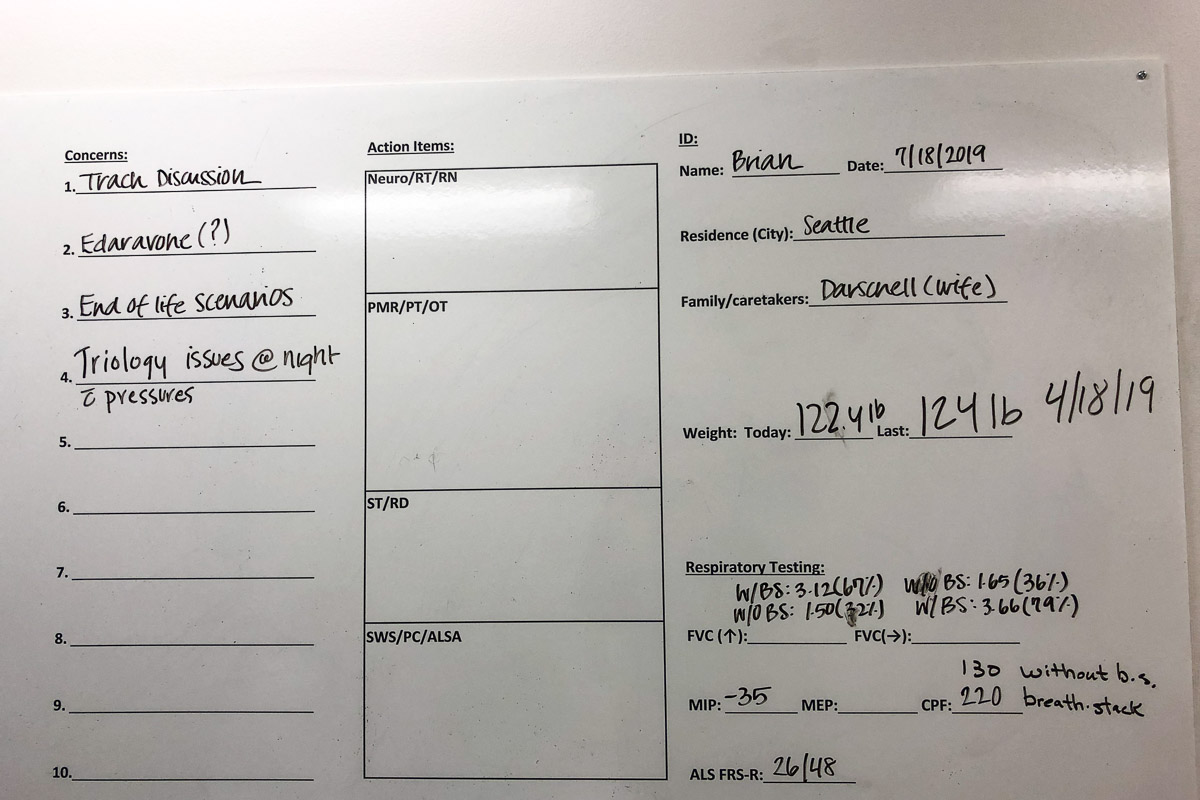 Concerns:
1. Trach Discussion
2. Edaravone (?)
3. End of life scenarios
4. Triology issues @ night
c̄ pressures
5.
6.
7.
8.
9.
10.
Action Items:
Neuro/RT/RN
PMR/PT/OT
ST/RD
SWS/PC/ALSA
ID:
Name: Brian Date: 7/18/2019
Residence (City): Seattle
Family/caretakers: Darschell (wife)
Weight: Today: 122.4 lb Last: 124 lb 4/18/19
Respiratory Testing:
W/BS: 3.12 (67%) W/O BS: 1.65 (36%)
W/O BS: 1.50 (32%) W/ BS: 3.66 (79%)
FVC (↑): FVC(→):
130 without b.s.
MIP: -35 MEP: CPF: 220 breath.stack
ALS FRS-R: 26/48